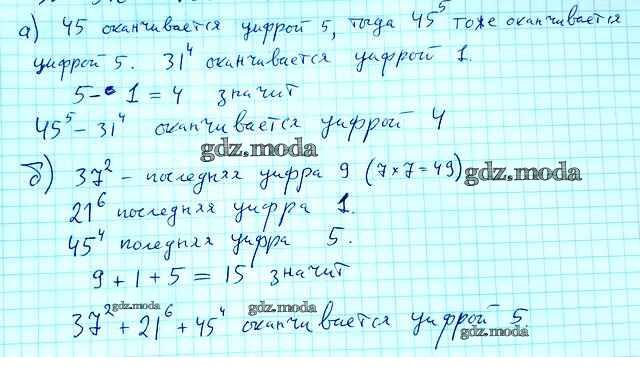 а) 45 оканчивается цифрой 5, тогда 45⁵ тоже оканчивается
цифрой 5. 31⁴ оканчивается цифрой 1.
5 - 1 = 4 значит
45⁵ - 31⁴ оканчивается цифрой 4
gdz.moda
б) 37² - последняя цифра 9 (7×7=49) gdz.moda
21⁶ последняя цифра 1.
45⁴ поледняя цифра 5.
9 + 1 + 5 = 15 значит
gdz.moda gdz.moda
37² + 21⁶ + 45⁴ оканчивается цифрой 5
gdz.moda